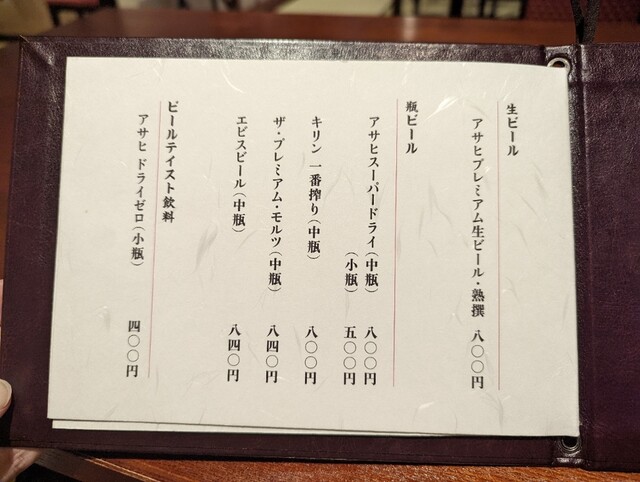 生ビール
アサヒプレミアム生ビール・熟撰 八〇〇円
瓶ビール
アサヒスーパードライ(中瓶) 八〇〇円
(小瓶) 五〇〇円
キリン 一番搾り(中瓶) 八〇〇円
ザ・プレミアム・モルツ(中瓶) 八四〇円
エビスビール(中瓶) 八四〇円
ビールテイスト飲料
アサヒ ドライゼロ(小瓶) 四〇〇円